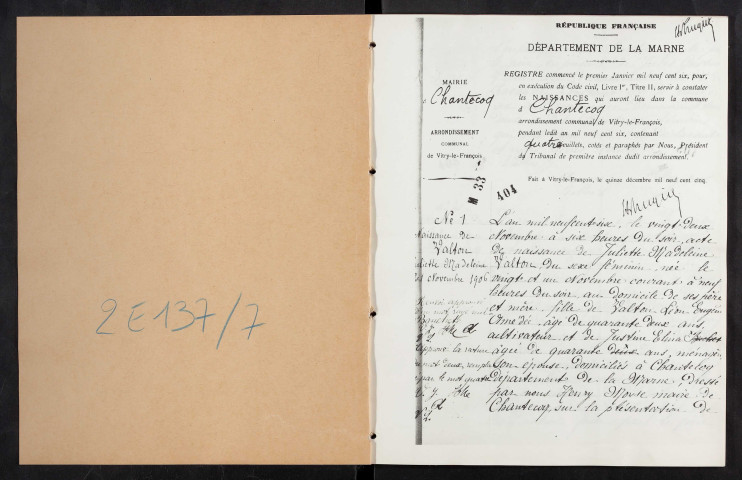 2 E 137/7
RÉPUBLIQUE FRANÇAISE
DÉPARTEMENT DE LA MARNE
MAIRIE
Chantecoq
ARRONDISSEMENT
COMMUNAL
de Vitry-le-François
REGISTRE commencé le premier Janvier mil neuf cent six, pour,
en exécution du Code civil, Livre Ier, Titre II, servir à constater
les NAISSANCES qui auront lieu dans la commune
d Chantecoq
arrondissement communal de Vitry-le-François,
pendant ledit an mil neuf cent six, contenant
quatre feuillets, cotés et paraphés par Nous, Président
du Tribunal de première instance dudit arrondissement.
Fait à Vitry-le-François, le quinze décembre mil neuf cent cinq.
M 33
404
No 1
Naissance de
Valton
Juliette Madeleine
21 Novembre 1906
L'an mil neuf cent six, le vingt deux
Novembre à six heures du soir, acte
de naissance de Juliette Madeleine
Valton, du sexe féminin, née le
vingt et un Novembre courant à neuf
heures du soir, au domicile de ses père
et mère, fille de Valton Léon Eugène
âgé de quarante deux ans,
cultivateur et de Justine Elina
âgée de quarante deux ans, ménagère
son épouse, domiciliés à Chantecoq
département de la Marne, Dressé
par nous Henry maire de
Chantecoq, sur la présentation de